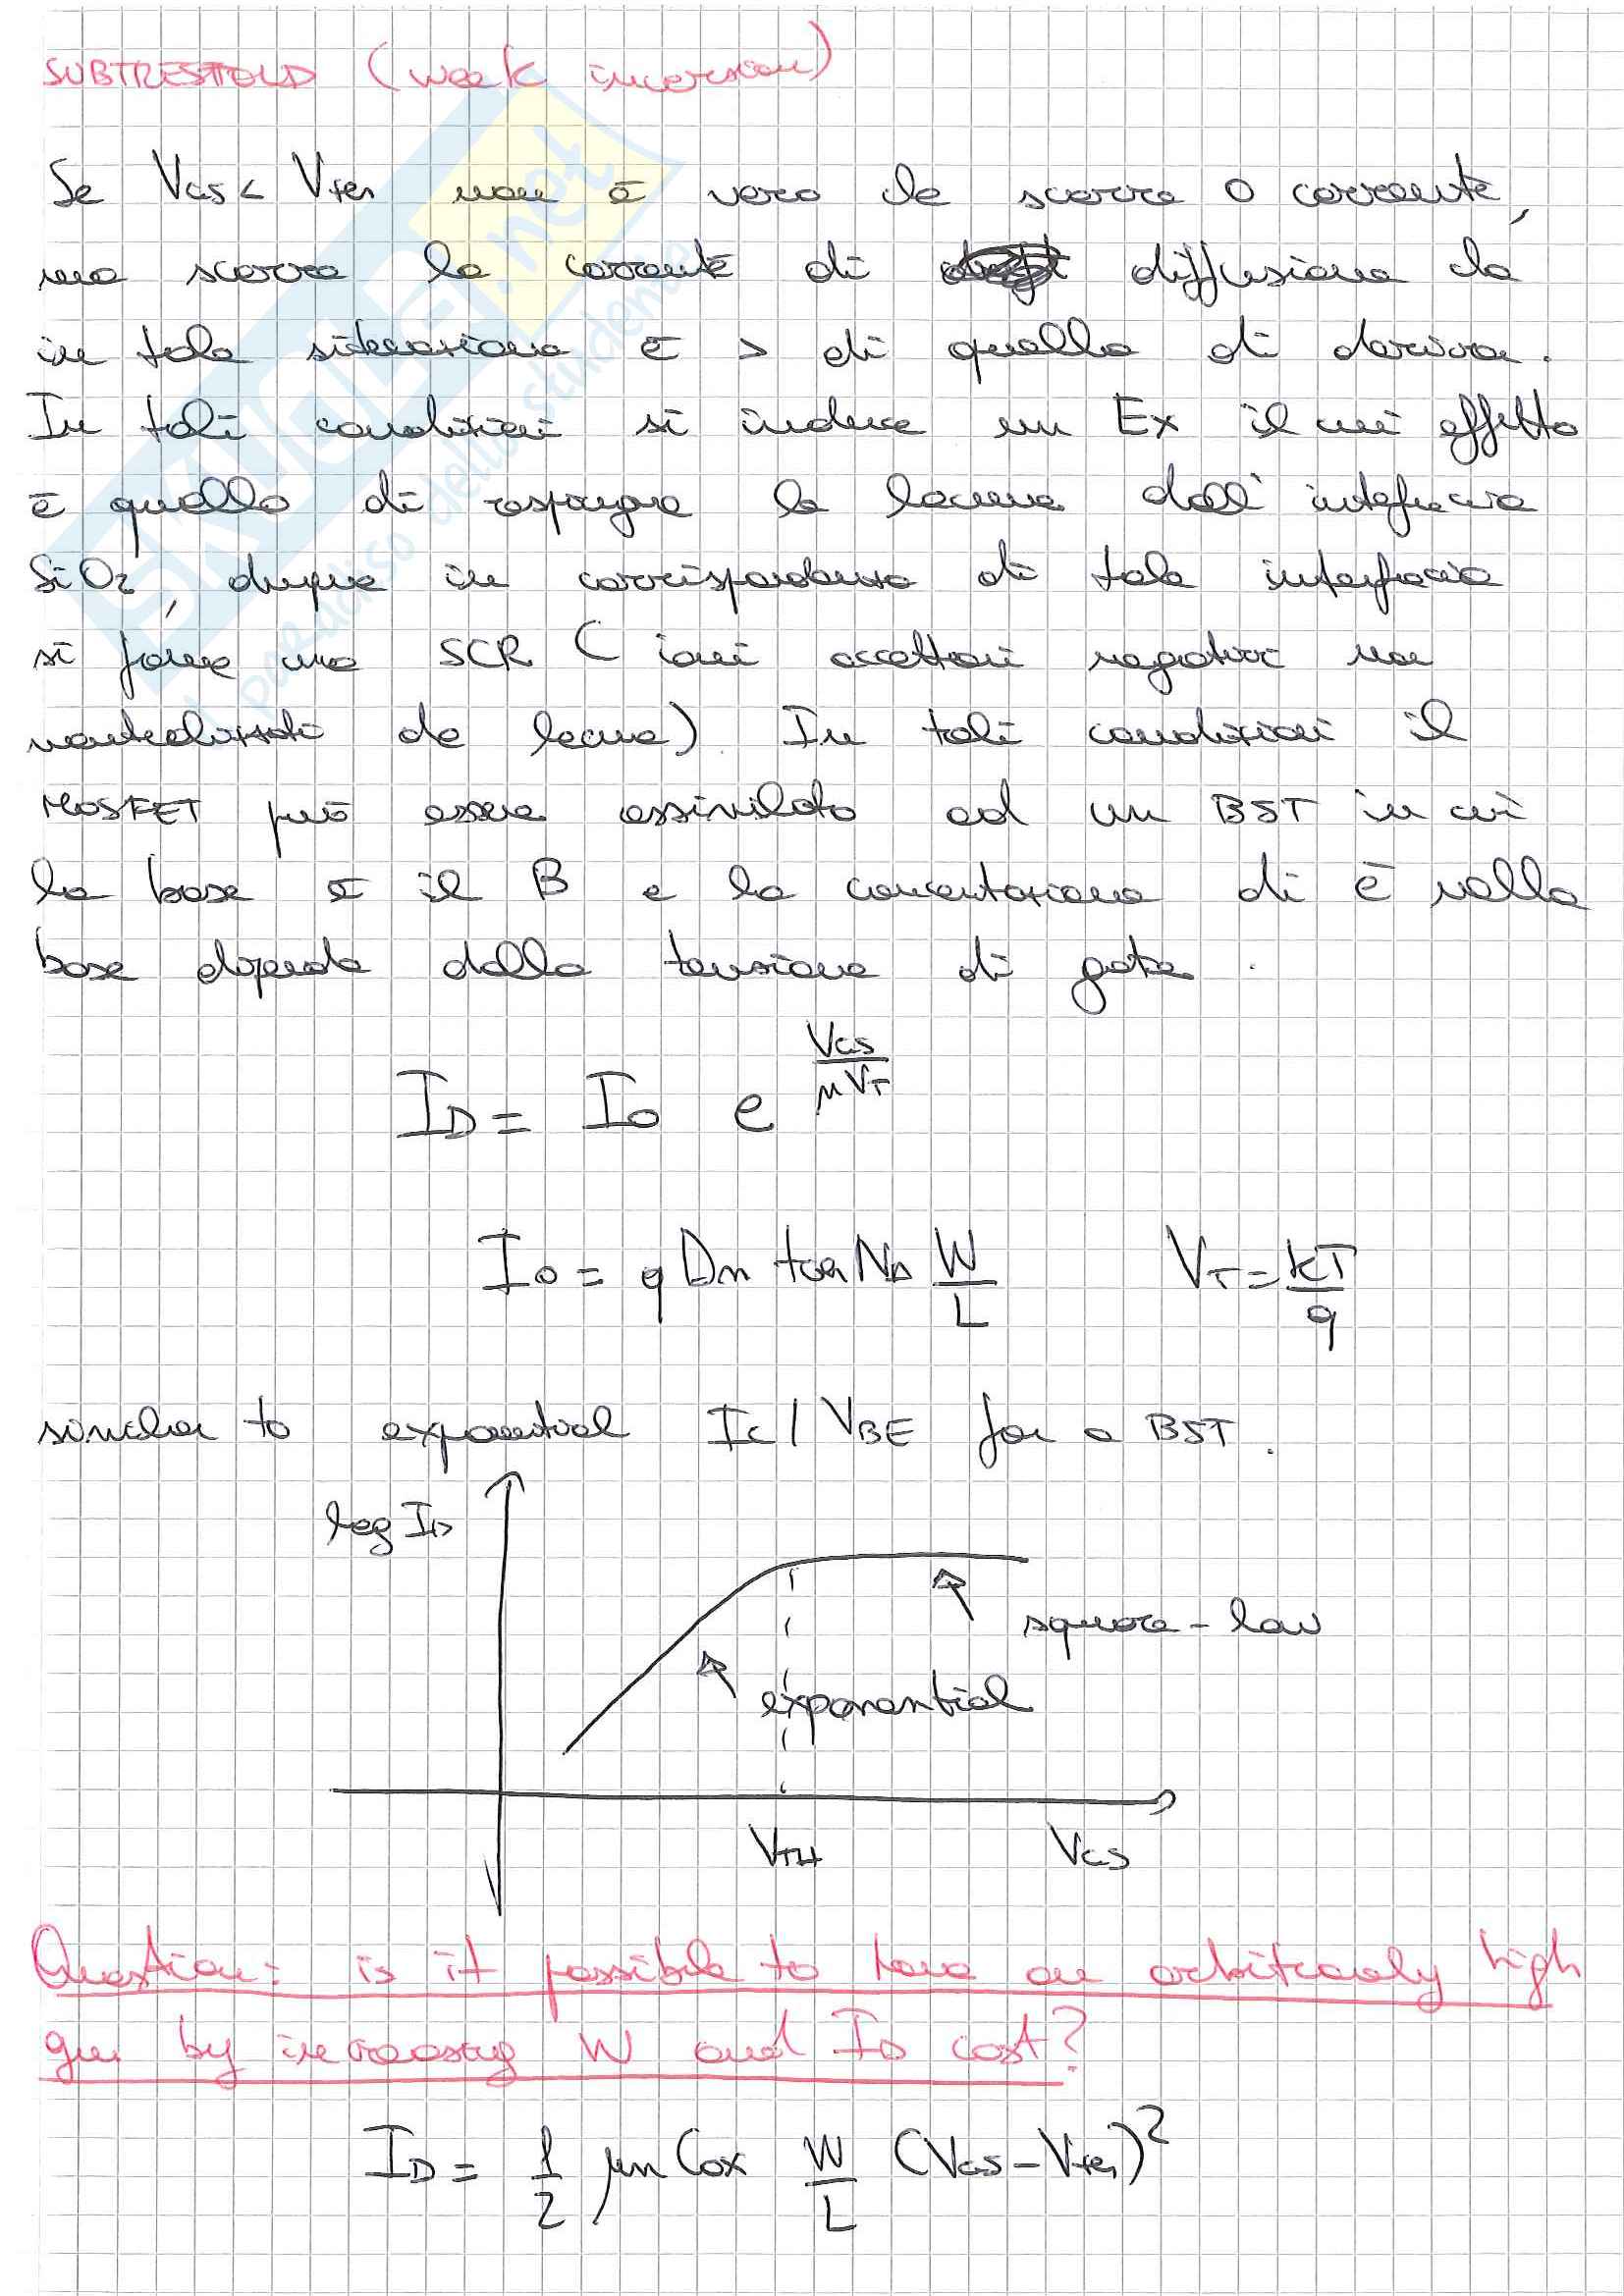 SUBTRESHOLD (weak inversion)
Se VGS < VTH non è vero che scorre 0 corrente,
ma scorre la corrente di diffusione che
in tale situazione è > di quella di deriva.
In tali condizioni si induce un Ex il cui effetto
è quello di respingere le lacune dall'intefaccia
SiO2, dunque in corrispondenza di tale interfaccia
si forma una SCR (ioni accettori negativi non
neutralizzati da lacune). In tali condizioni il
MOSFET può essere assimilato ad un BJT in cui
la base è il B e la concentrazione di e⁻ nella
base dipende dalla tensione di gate.
ID = I0 e^(VGS/nVT)
I0 = q Dn tch NA W/L VT = kT/q
similar to exponential IC/VBE for a BJT.
log ID
square-law
exponential
VTH VGS
Question: is it possible to have an arbitrarely high
gm by increasing W and ID cost?
ID = 1/2 μn Cox W/L (VGS - VTH)²
SKUOLA.net
il paradiso dello studente